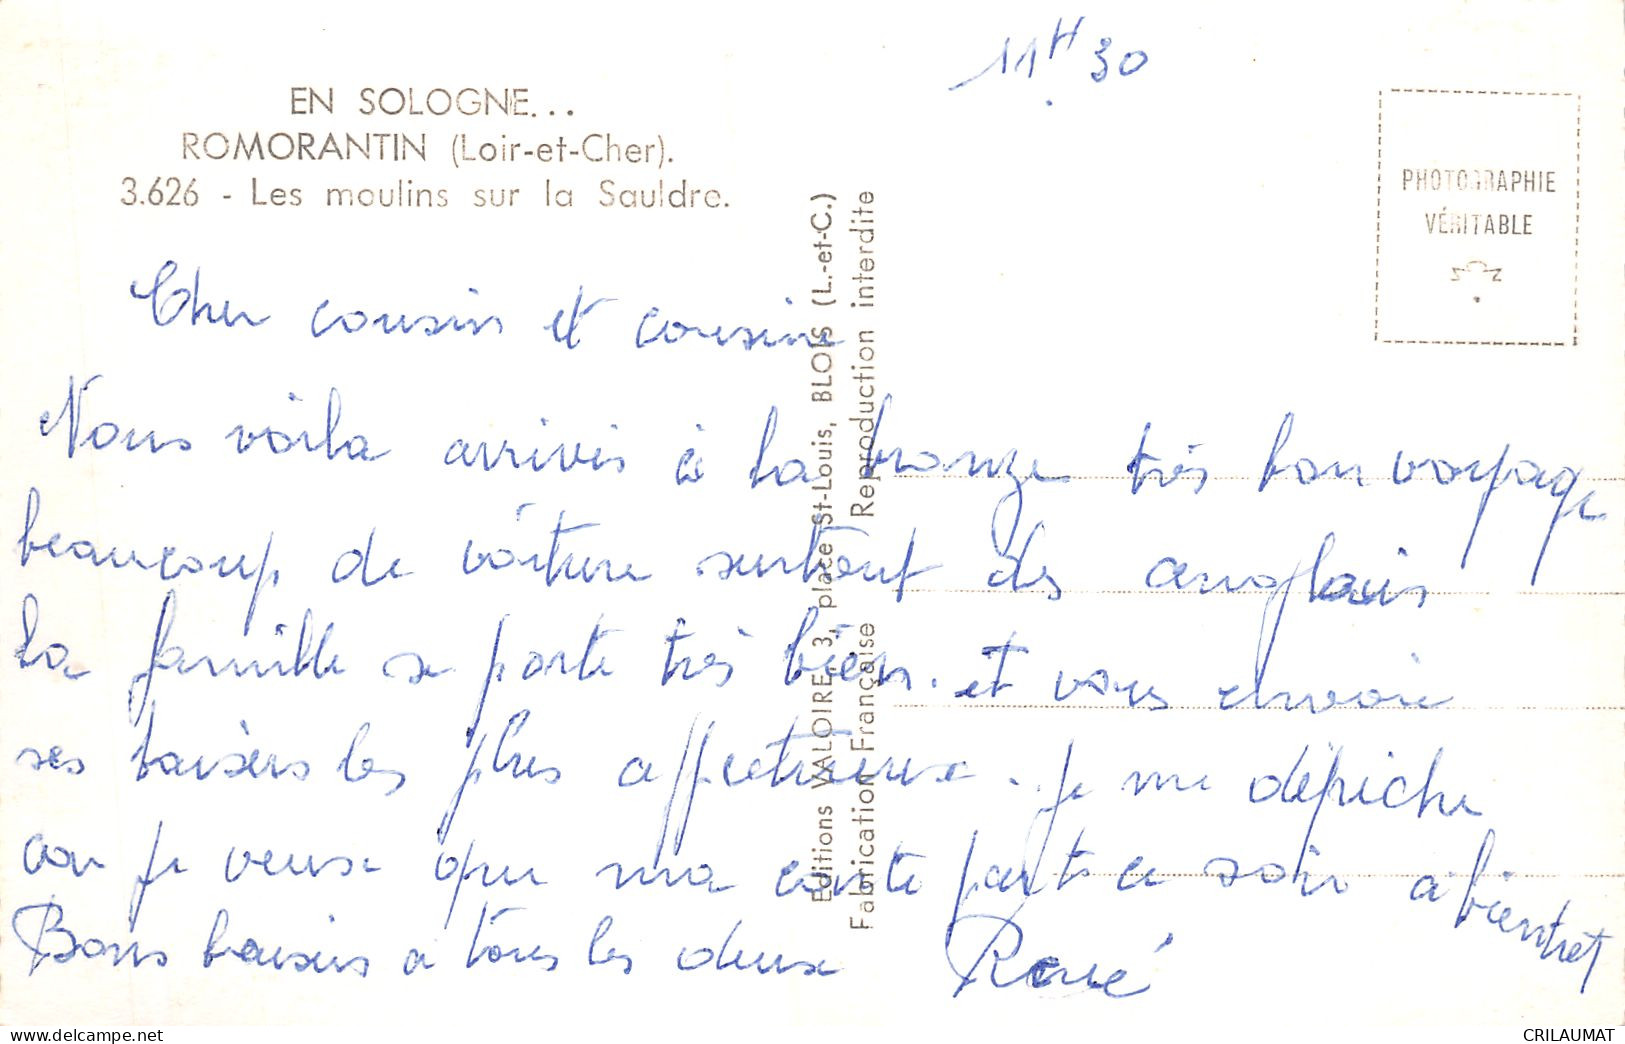 11H30
EN SOLOGNE...
ROMORANTIN (Loir-et-Cher).
3.626 - Les moulins sur la Sauldre.
PHOTOGRAPHIE
VÉRITABLE
Editions VALOIRE, 3, place St-Louis, BLOIS (L.-et-C.)
Fabrication Française Reproduction interdite
Cher cousin et cousine
Nous voila arrivés à la bronze très bon voyage
beaucoup de voiture surtout des anglais
la famille se porte très bien. et vous envoie
ses baisers les plus affectueuse. je me dépêche
car je veuse que ma carte parte ce soir a bientot
Bons baisers a tous les deux René
www.delcampe.net
CRILAUMAT